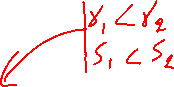 γ₁ < γ₂
S₁ < S₂